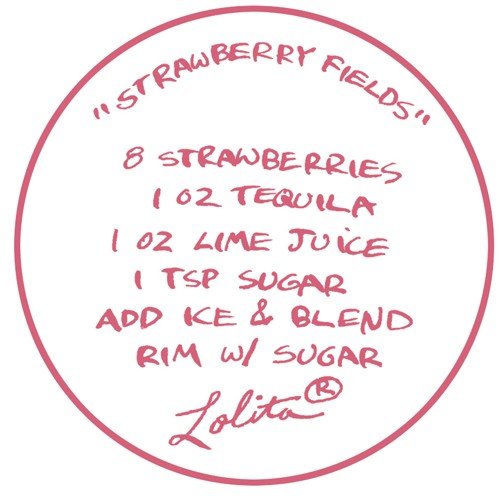 "STRAWBERRY FIELDS"
8 STRAWBERRIES
1 OZ TEQUILA
1 OZ LIME JUICE
1 TSP SUGAR
ADD ICE & BLEND
RIM W/ SUGAR
Lolita®